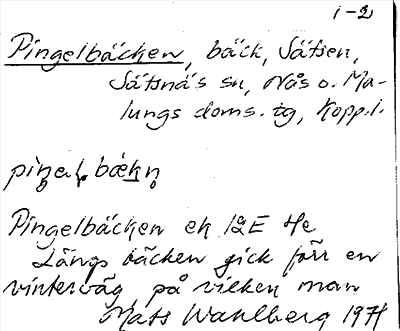 1-2
Pingelbäcken, bäck, Sätsen,
Sätsnäs sn, Nås o. Ma-
lungs doms. tg, Kopp.l.
Pingelbäcken ek 12E
Längs bäcken gick förr en
vinterväg på vilken man
Mats Wahlberg 1971